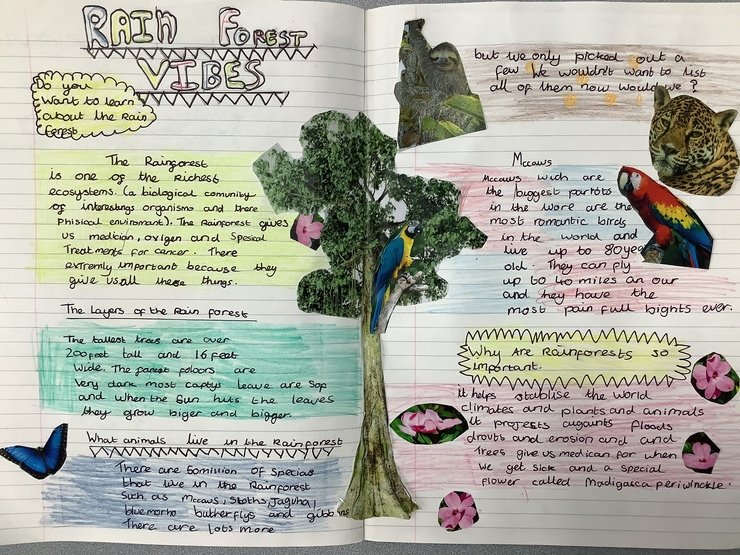 RAIN FOREST
VIBES
Do you
want to learn
about the Rain
Forest
The Rainforest
is one of the richest
ecosystems. (a biological comunity
of interestings organisms and there
Phisical enviroment). The Rainforest gives
us medician, oxigen and Spesial
Treatments for cancer. There
extremly important because they
give us all these things.
The Layers of the Rain forest
The tallest trees are over
200 feet tall and 16 feet
wide. The forest floors are
Very dark most leave are Sop
and when the Sun huts the leaves
they grow biger and bigger.
What animals live in the Rainforest
There are 60million of Specias
that live in the Rainforest
Such as Mccaws, Sloths, Jaguha,
bluemorho butterflys and gibb ns
There are lots more
but we only picked out a
few We wouldn't want to list
all of them now would we?
Mccaws
Mccaws wich are
the biggest parrots
in the wore are the
most romantic birds
in the world and
live up to 80 yea
old. They can fly
up to 40 miles an our
and they have the
most pain full bights ever.
Why Are Rainforests so
important.
it helps stublise the world
climates and plants and animals
it protests augaints floods
droubts and erosion and and
Trees give us medican for when
we get sick and a special
flower called Madigasca periwinkle.